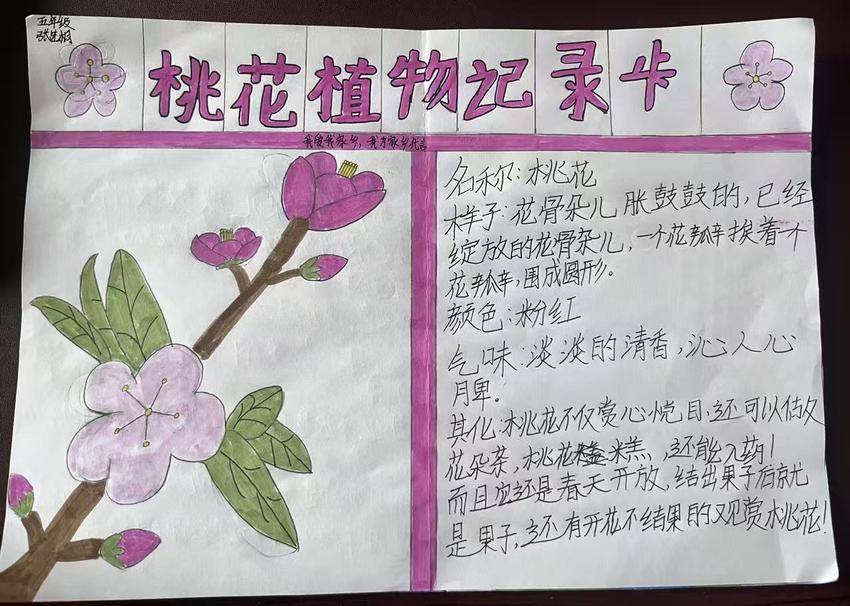 五年级
桃花植物记录卡
我爱我家乡，我为家乡代言
名称：桃花
样子：花骨朵儿胀鼓鼓的，已经
绽放的花骨朵儿，一个花瓣挨着一个
花瓣，围成圆形。
颜色：粉红
气味：淡淡的清香，沁人心
脾。
其化：桃花不仅赏心悦目，还可以做
花朵茶，桃花糕，还能入药！
而且它还是春天开放，结出果子后就
是果子，还有开花不结果的观赏桃花！